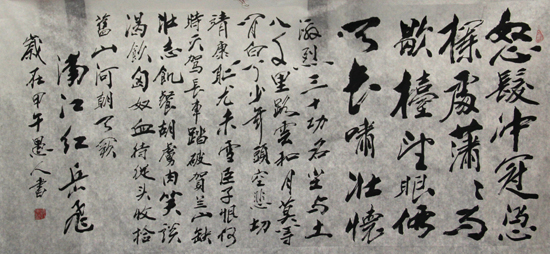 怒髮冲冠憑
欄處瀟瀟雨
歇擡望眼仰
天長嘯壯懷
激烈三十功名塵与土
八千里路雲和月莫等
閒白了少年頭空悲切
靖康耻尤未雪臣子恨何
時灭駕長車踏破賀兰山缺
壯志飢餐胡虜肉笑談
渴飲匈奴血待從头收拾
舊山河朝天闕
滿江红岳飛
歲在甲午墨人書